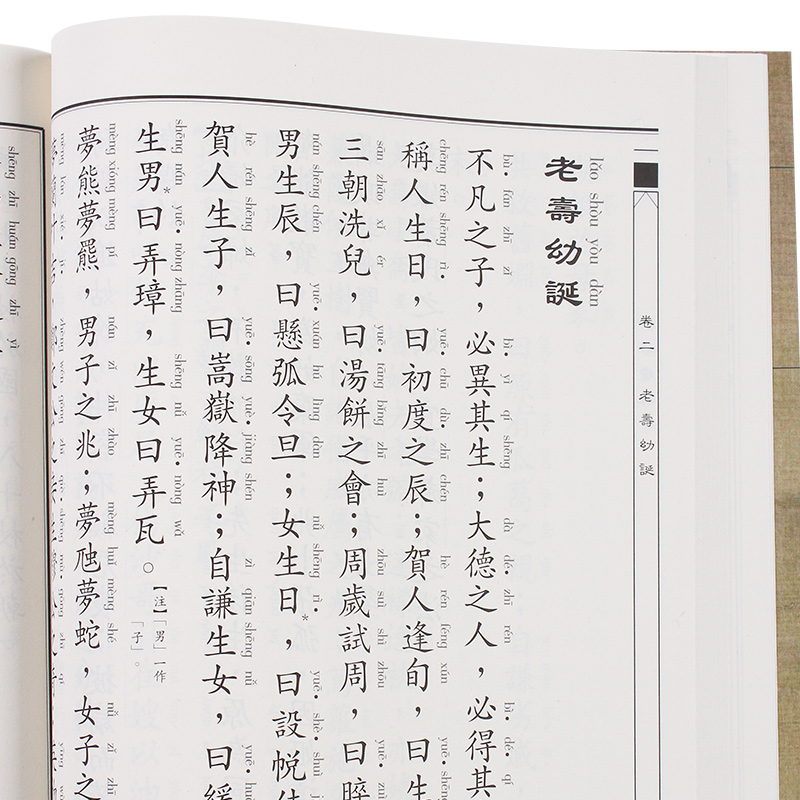 卷二 老壽幼誕
老壽幼誕
lǎo shòu yòu dàn
不凡之子，必異其生；大德之人，必得其
bù fán zhī zǐ bì yì qí shēng dà dé zhī rén bì dé qí
稱人生日，曰初度之辰；賀人逢旬，曰生
chēng rén shēng rì yuē chū dù zhī chén hè rén féng xún yuē shēng
三朝洗兒，曰湯餅之會；周歲試周，曰晬
sān zhāo xǐ ér yuē tāng bǐng zhī huì zhōu suì shì zhōu yuē
男生辰，曰懸弧令旦；女生日*，曰設帨佳
nán shēng chén yuē xuán hú lìng dàn nǚ shēng rì yuē shè shuì
賀人生子，曰嵩嶽降神；自謙生女，曰緩
hè rén shēng zǐ yuē sōng yuè jiàng shén zì qiān shēng nǚ yuē
生男*曰弄璋，生女曰弄瓦。
shēng nán yuē nòng zhāng shēng nǚ yuē nòng wǎ
【注】「男」一作
「子」。
夢熊夢羆，男子之兆；夢虺夢蛇，女子之
mèng xióng mèng pí nán zǐ zhī zhào mèng huǐ mèng shé nǚ zǐ zhī
shēng zhī huán gōng zhī yì